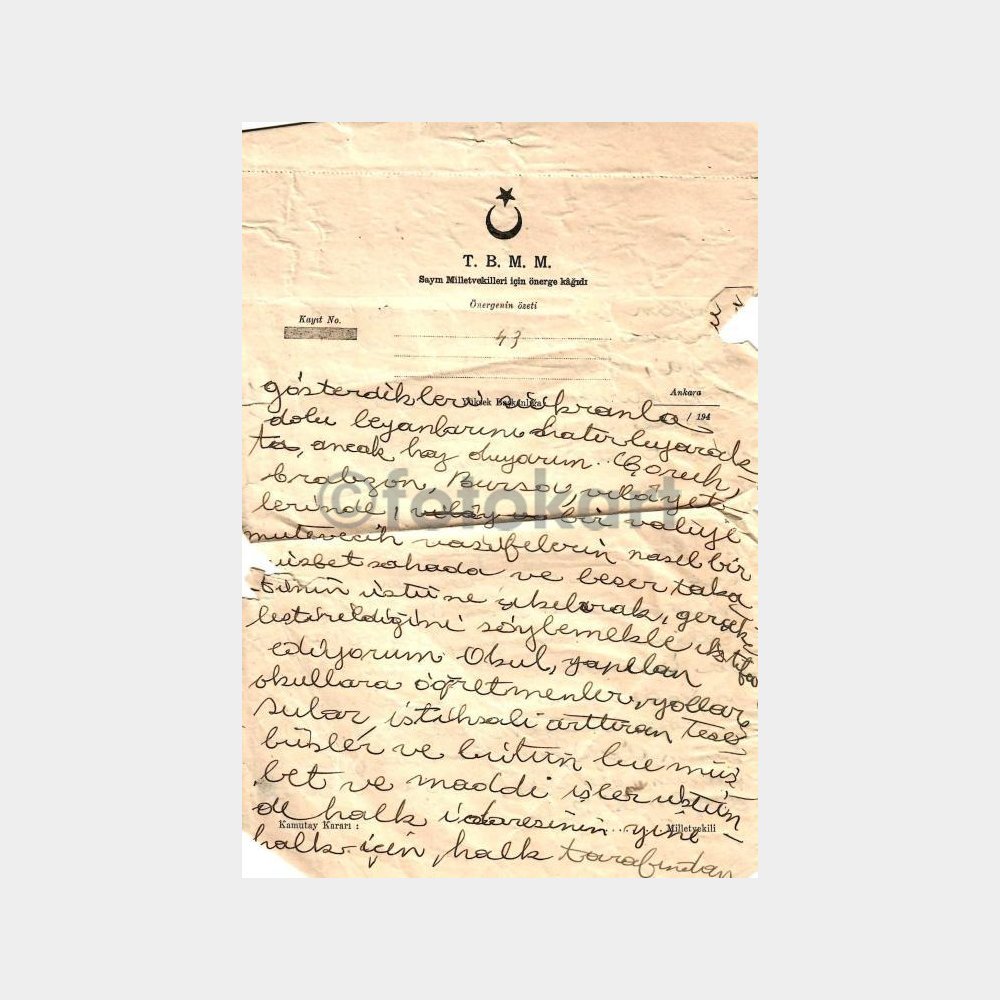 T. B. M. M.
Sayın Milletvekilleri için önerge kâğıdı
Önergenin özeti
Kayıt No.
43
Ankara
/ 194
Yüksek Başkanlığa
gösterdikleri şükranla
dolu beyanlarını hatırlıyarak
ta, ancak haz duyarım. Çoruh,
Trabzon, Bursa, vilâyet
lerinde, bir valiye
müteveccih vazifelerin nasıl bir
müsbet sahada ve beşer taka
tının üstüne çıkılarak, gerçek-
leştirildiğini söylemekle iktifa
ediyorum Okul, yapılan
okullara öğretmenler, yollar,
sular, istihsali arttıran teşeb
büsler ve bütün bu müs
bet ve maddi işler üstün
de halk idaresinin yine
halk için, halk tarafından
Kamutay Kararı :
Milletvekili
©fotokart